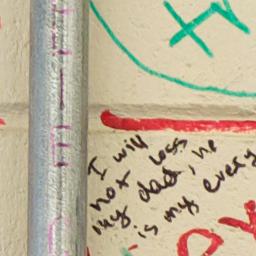 I will
not loss
my dad, he
is my every